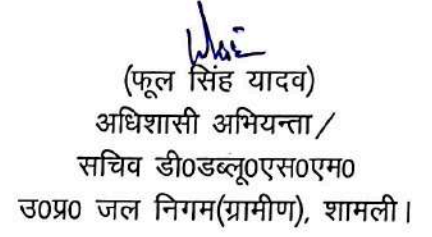 (फूल सिंह यादव)
अधिशासी अभियन्ता/
सचिव डी0डब्लू0एस0एम0
उ0प्र0 जल निगम(ग्रामीण), शामली।